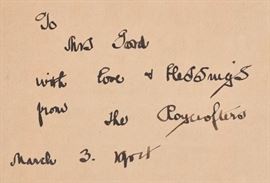 To
Mrs Gord
with love & blessings
from the Roycrofters
March 3.